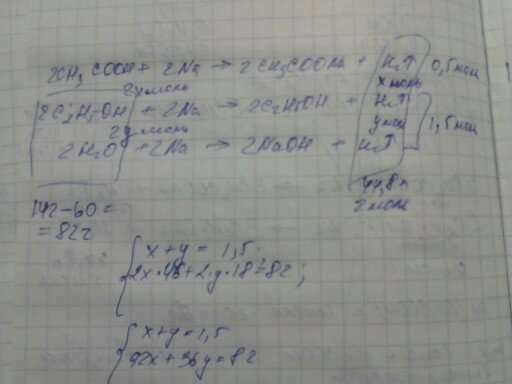 2CH₃COOH + 2Na → 2CH₃COONa + H₂↑ 0,5 моль
2x моль x моль
2C₂H₅OH + 2Na → 2C₂H₅OH + H₂↑
2y моль y моль 1,5 моль
2H₂O + 2Na → 2NaOH + H₂↑
44,8 л
2 моль
142-60 =
= 82г
x+y = 1,5
2x·46+2·y·18=82;
x+y=1,5
92x+36y=82